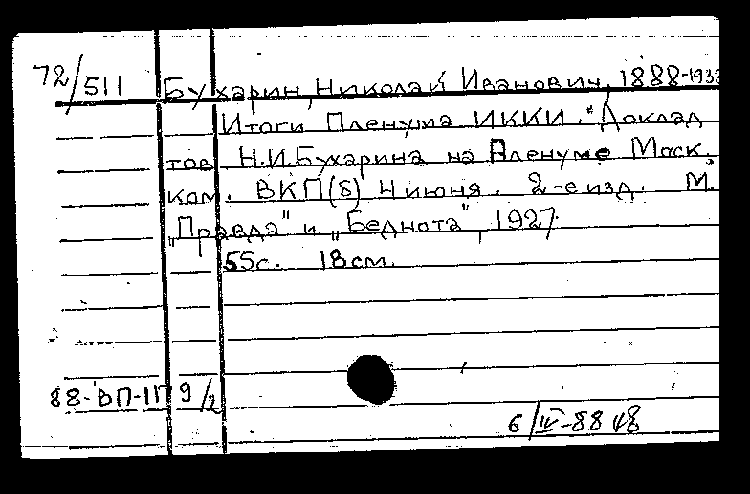 72/511 Бухарин, Николай Иванович, 1888-1938
Итоги Пленума ИККИ. "Доклад
тов. Н.И.Бухарина на Пленуме Моск.
ком. ВКП(б) 4 июня. 2-е изд. М.
"Правда" и "Беднота", 1927.
55с. 18см.
88-ВП-11 9/2
6/IV-88